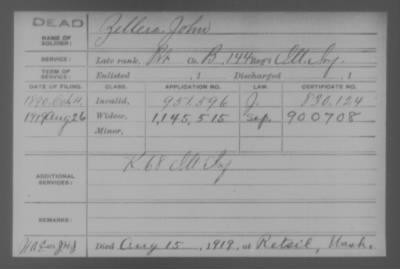 DEAD
NAME OF SOLDIER: Zellers, John
SERVICE: Late rank, Pvt Co. B, 144 Reg't Ill. Inf.
TERM OF SERVICE: Enlisted , 1 Discharged , 1
DATE OF FILING. CLASS. APPLICATION NO. LAW. CERTIFICATE NO.
1890 Invalid, 951,596 J. 830,124
1919 Aug 26 Widow, 1,145,515 900708
Minor,
ADDITIONAL SERVICES: K 68 Ill Inf
REMARKS:
Died Aug 15, 1919, at Retsil, Wash.